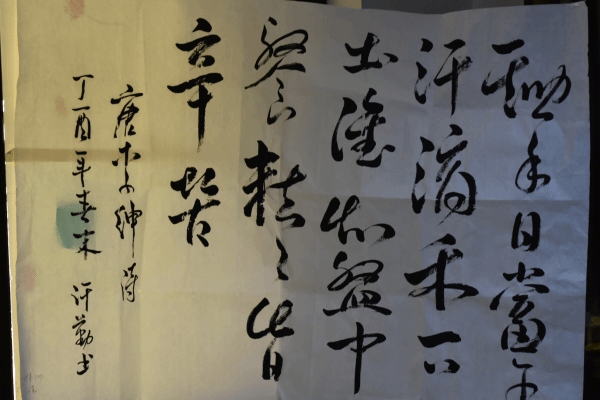 鋤禾日當午
汗滴禾下
土誰知盤中
餐粒々皆
辛苦
唐李紳诗
丁酉年春末 许勤书